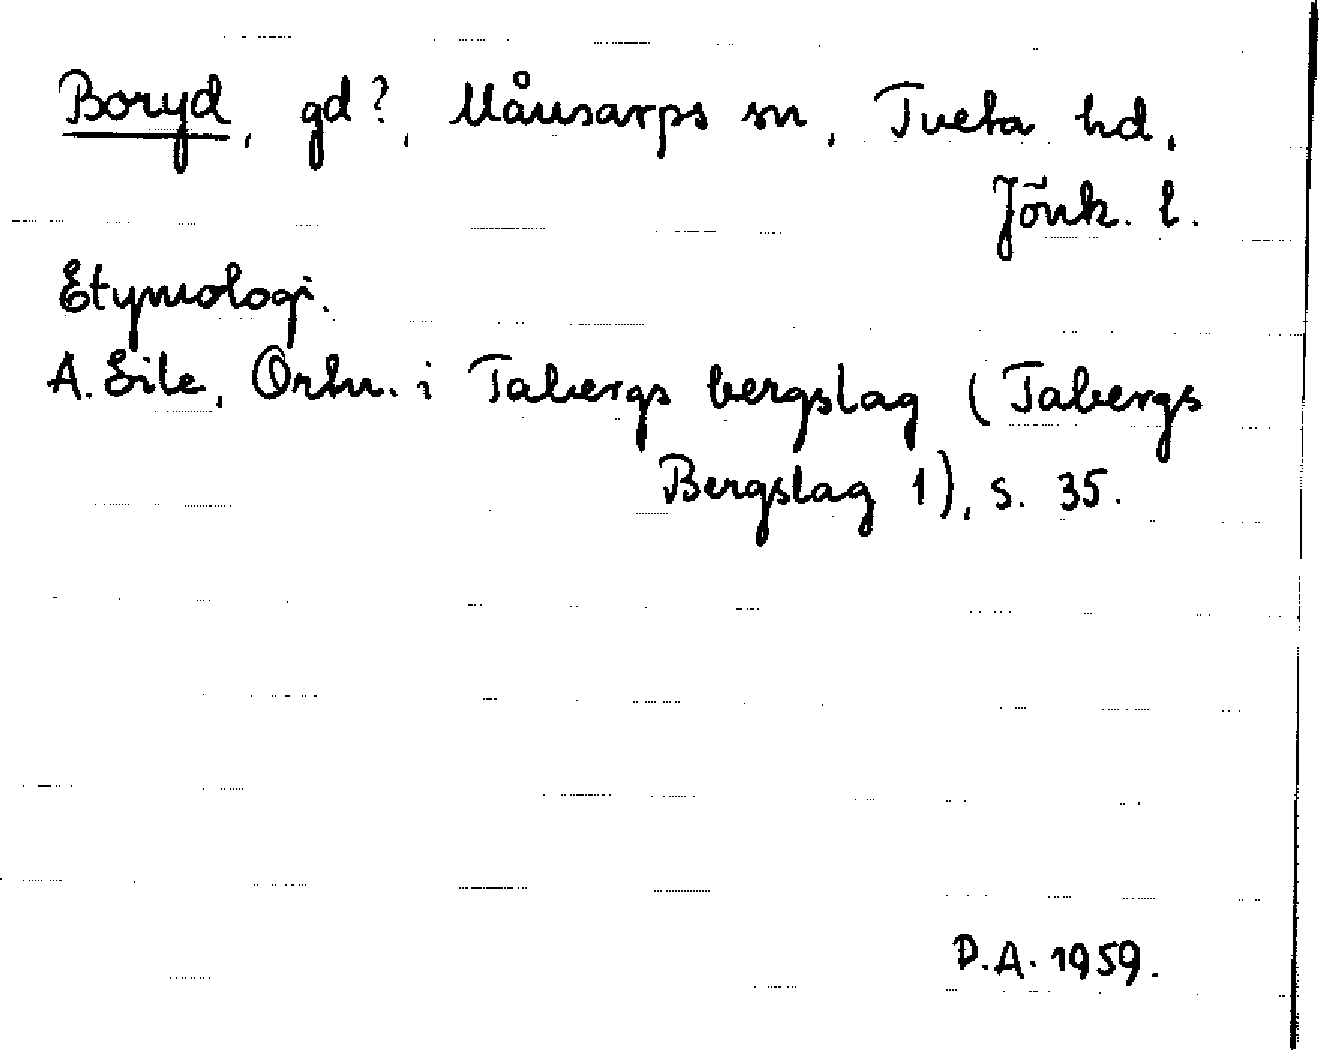 Boryd, gd?, Månsarps sn, Tveta hd,
Jönk. l.
Etymologi.
A. Eile, Ortn. i Tabergs bergslag (Tabergs
Bergslag 1), s. 35.
D.A. 1959.